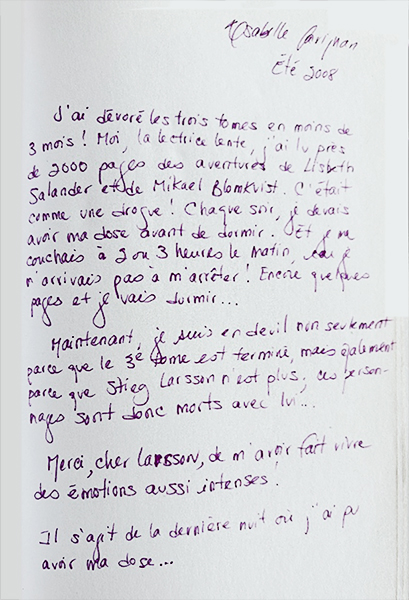 Isabelle Gavignan
Été 2008
J'ai dévoré les trois tomes en moins de
3 mois ! Moi, la lectrice lente, j'ai lu près
de 2000 pages des aventures de Lisbeth
Salander et de Mikael Blomkvist. C'était
comme une drogue ! Chaque soir, je devais
avoir ma dose avant de dormir. Et je me
couchais à 2 ou 3 heures le matin, car je
n'arrivais pas à m'arrêter ! Encore quelques
pages et je vais dormir...
Maintenant, je suis en deuil non seulement
parce que le 3e tome est terminé, mais également
parce que Stieg Larsson n'est plus, ces person-
nages sont donc morts avec lui...
Merci, cher Larsson, de m'avoir fait vivre
des émotions aussi intenses !
Il s'agit de la dernière nuit où j'ai pu
avoir ma dose...